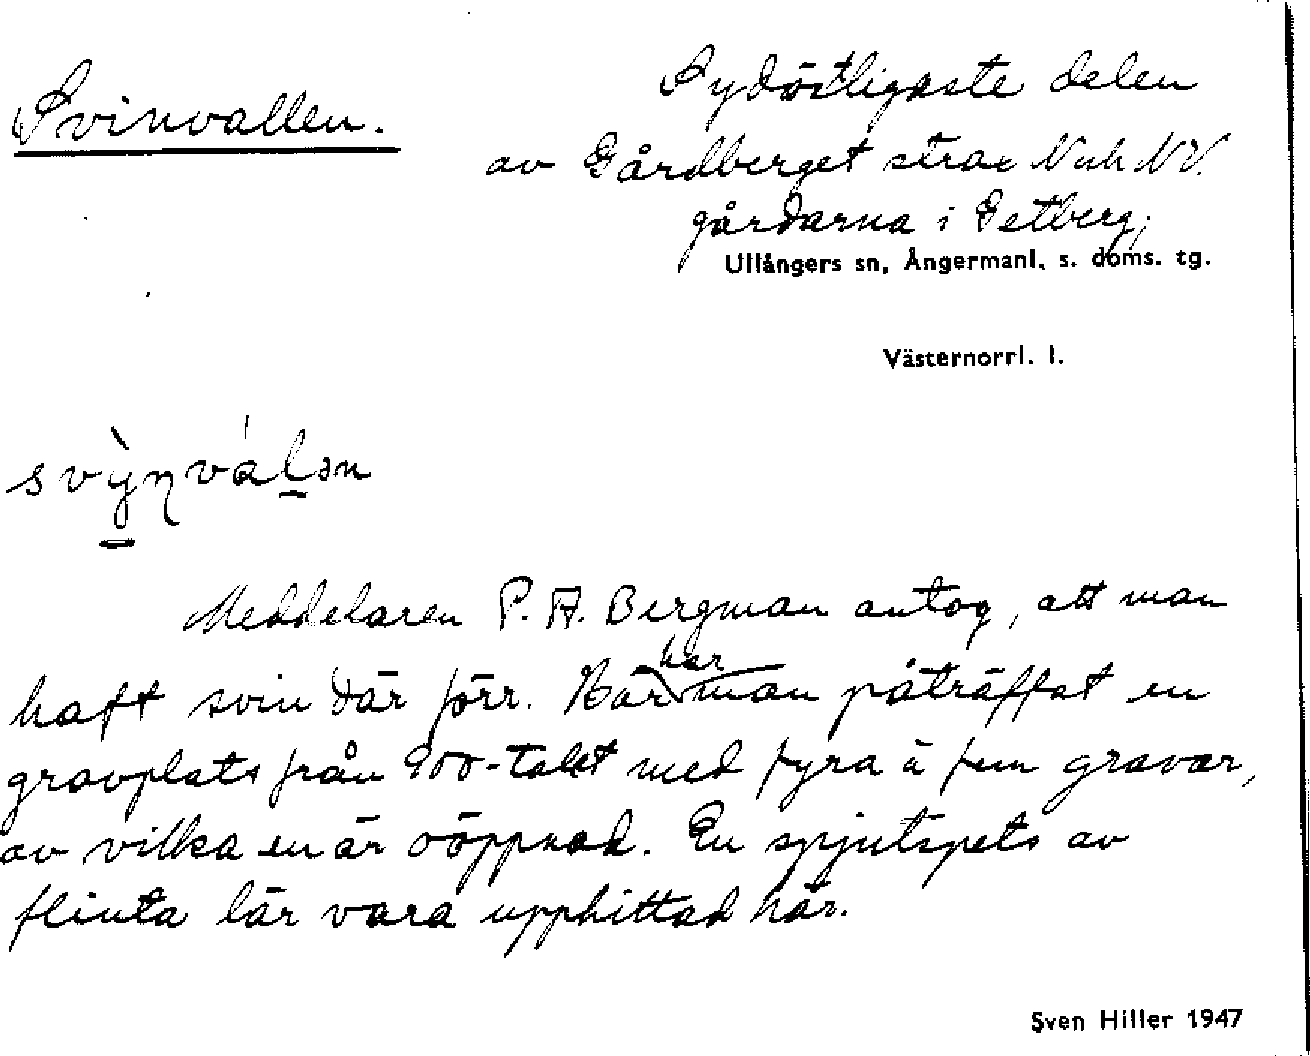 Svinvallen.
Sydöstligaste delen
av Gårdberget strax N och NV.
gårdarna i Getberg;
Ullångers sn, Ångermanl. s. doms. tg.
Västernorrl. l.
Meddelaren P. A. Bergman antog, att man
haft svin där förr. Här har man påträffat en
gravplats från 900-talet med fyra à fem gravar,
av vilka en är oöppnad. En spjutspets av
flinta lär vara upphittad här.
Sven Hiller 1947